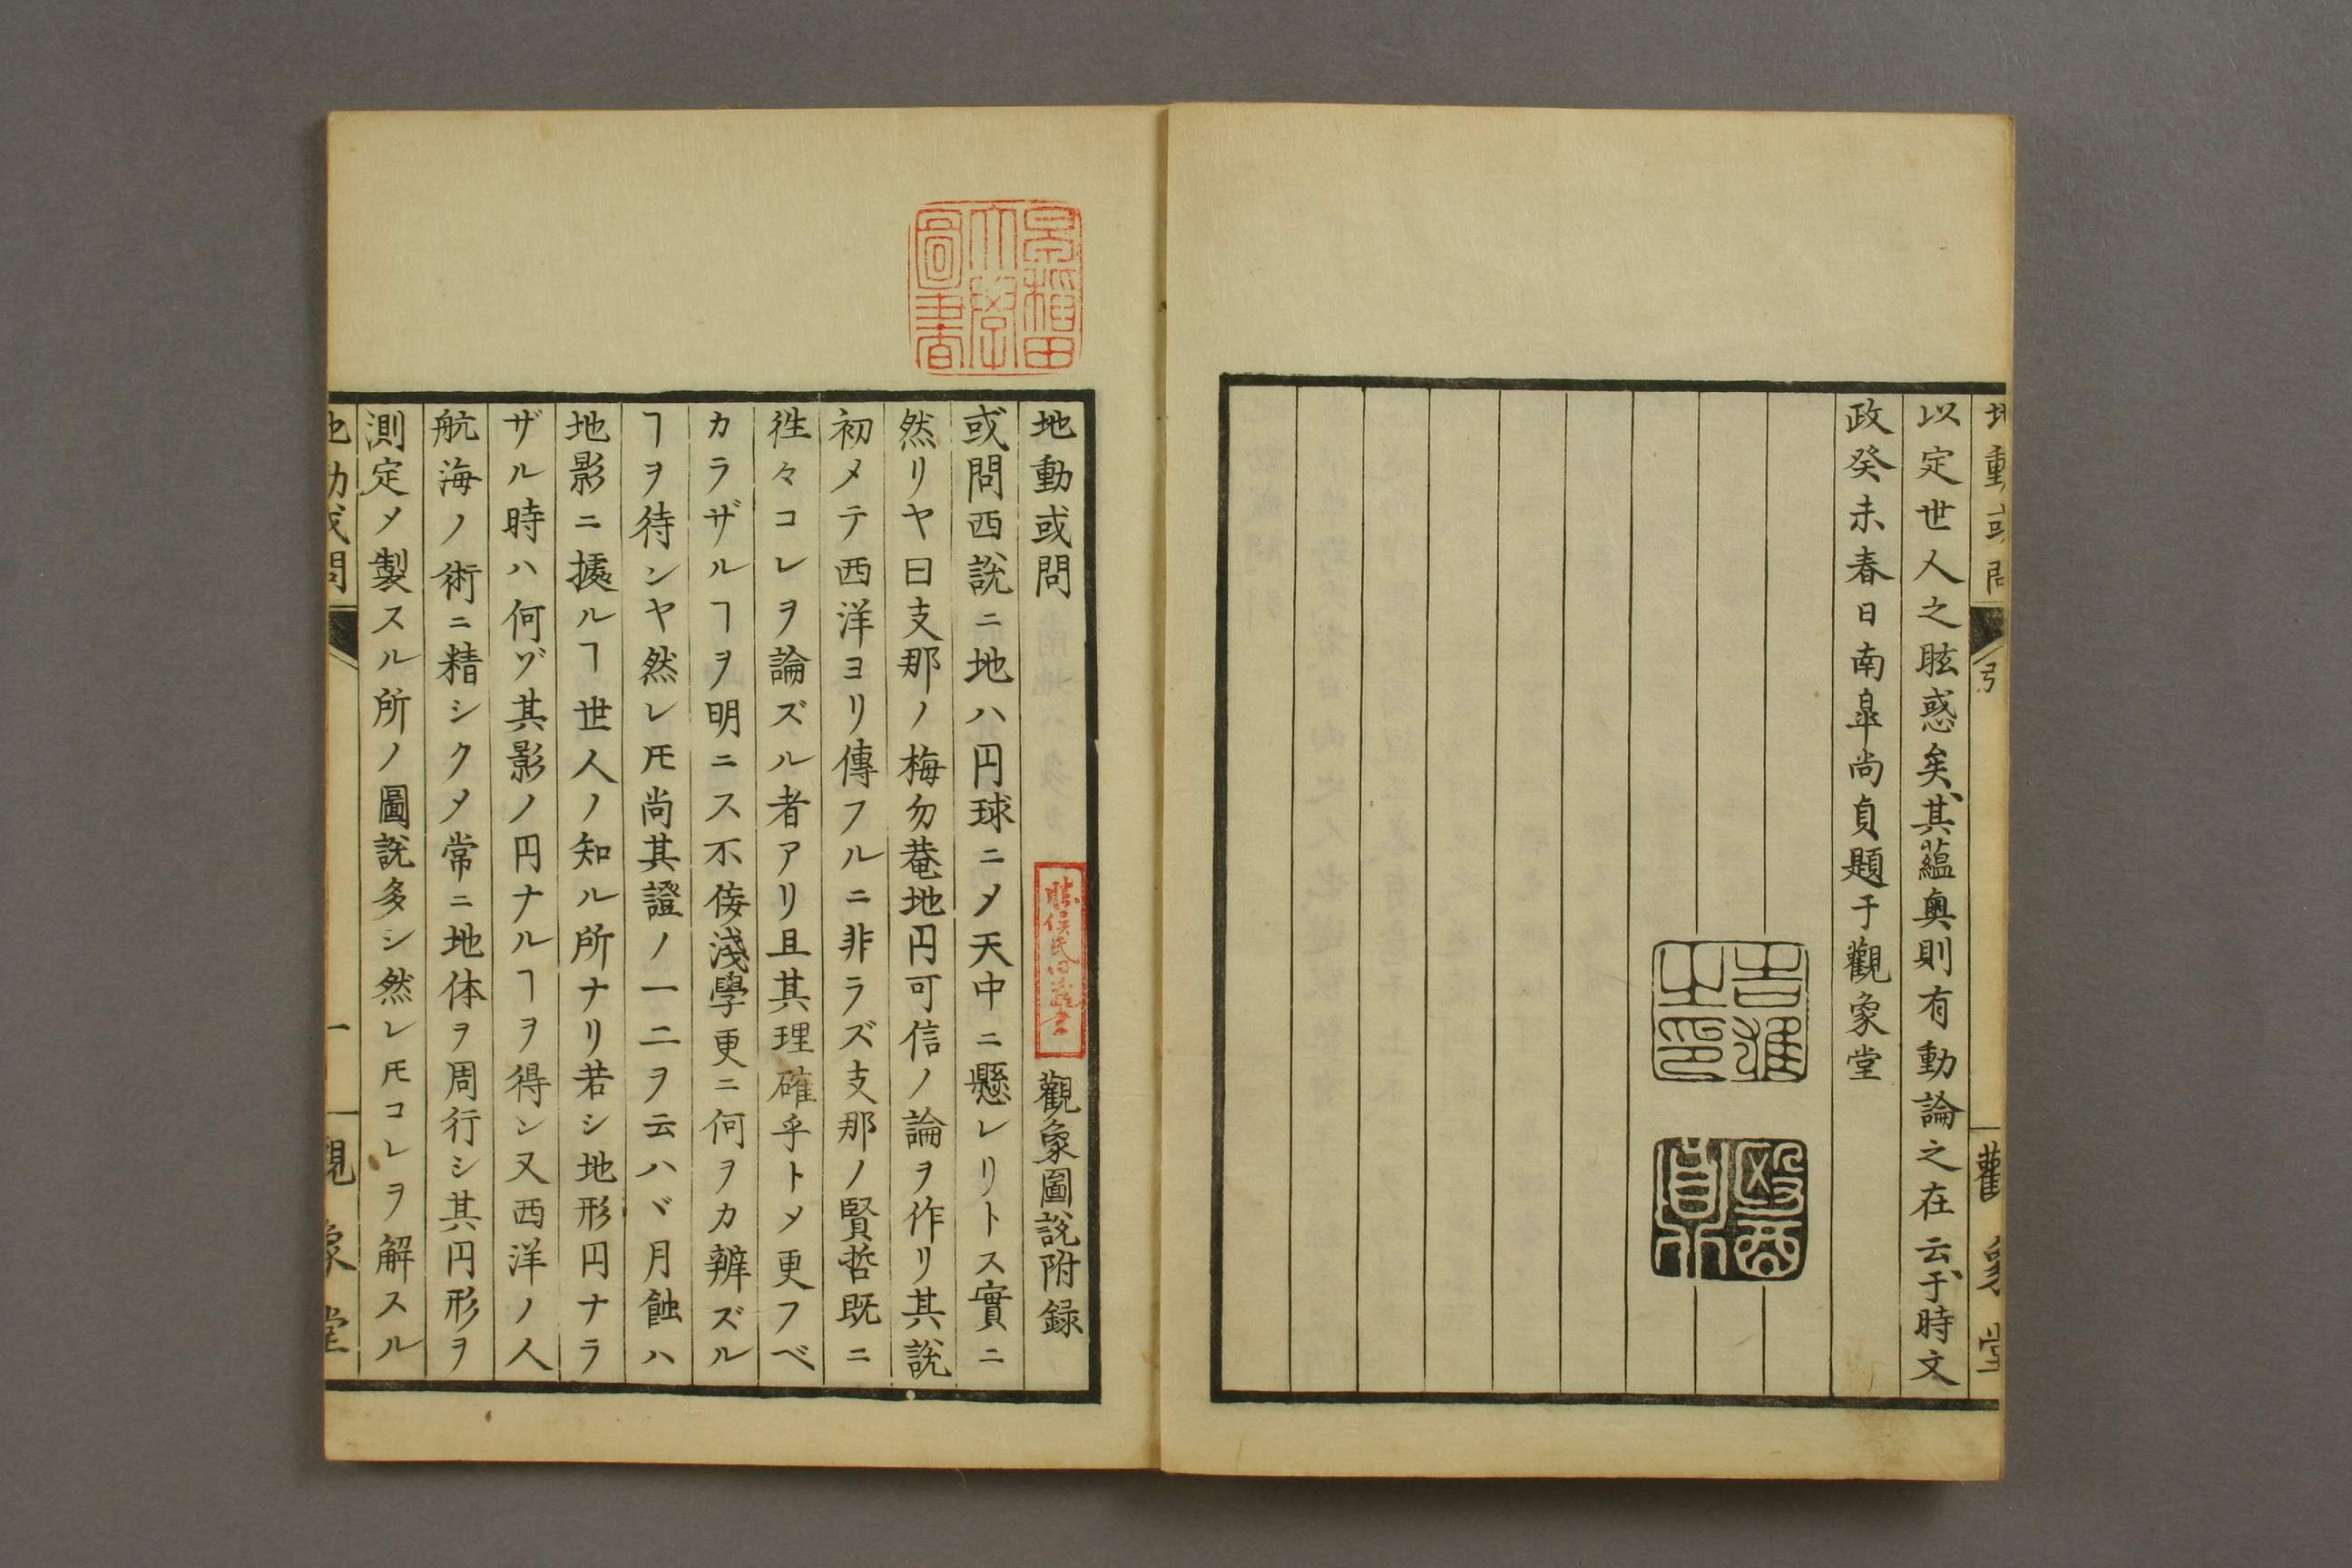 地動或問
引
觀象堂
以定世人之眩惑矣、其蘊奥則有動論之在云、于時文
政癸未春日南皐尚貞題于觀象堂
吉雄之印
尚貞
早稲田大學圖書
地動或問
觀象圖説附録
或問西説ニ地ハ円球ニメ天中ニ懸レリトス實ニ
然リヤ曰支那ノ梅勿菴地円可信ノ論ヲ作リ其説
初メテ西洋ヨリ傳フルニ非ラズ支那ノ賢哲既ニ
徃々コレヲ論ズル者アリ且其理確乎トメ更フベ
カラザルヿヲ明ニス不侫淺學更ニ何ヲカ辨ズル
ヿヲ待ンヤ然レ𪜈尚其證ノ一二ヲ云ハヾ月蝕ハ
地影ニ據ルヿ世人ノ知ル所ナリ若シ地形円ナラ
ザル時ハ何ゾ其影ノ円ナルヿヲ得ン又西洋ノ人
航海ノ術ニ精シクメ常ニ地体ヲ周行シ其円形ヲ
測定メ製スル所ノ圖説多シ然レ𪜈コレヲ解スル
地動或問
一
觀象堂